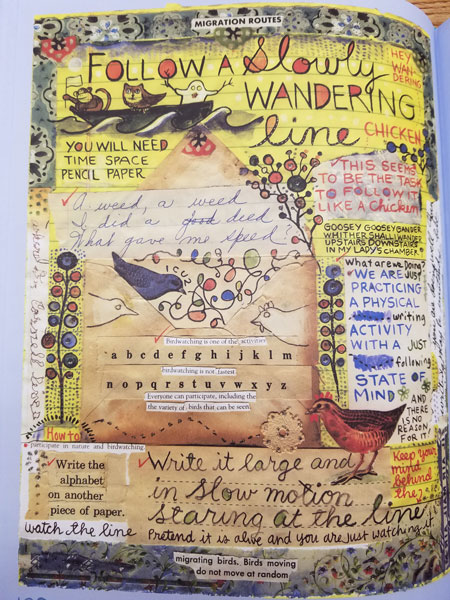 MIGRATION ROUTES
FOLLOW A Slowly
WANDERING
line
HEY
WAN-
DERING
CHICKEN
YOU WILL NEED
TIME SPACE
PENCIL PAPER
THIS SEEMS
TO BE THE TASK
TO FOLLOW IT
LIKE A Chicken
A weed, a weed
I did a good deed
What gave me speed?
GOOSEY GOOSEY GANDER
WHITHER SHALL I WANDER
UPSTAIRS DOWNSTAIRS
IN MY LADY'S CHAMBER
ICU2
what are we doing
WE ARE JUST
PRACTICING
A PHYSICAL
writing
ACTIVITY
WITH A JUST
following
STATE OF
MIND
AND
THERE
IS NO
REASON
FOR IT
Birdwatching is one of the activities
a b c d e f g h i j k l m
birdwatching is not fastest
n o p q r s t u v w x y z
Everyone can participate, including the
the variety of birds that can be seen
How to
participate in nature and birdwatching
Write the
alphabet
on another
piece of paper.
watch the line
Write it large and
in slow motion
staring at the line
Pretend it is alive and you are just watching it
Keep your
mind
behind
the
migrating birds. Birds moving
do not move at random